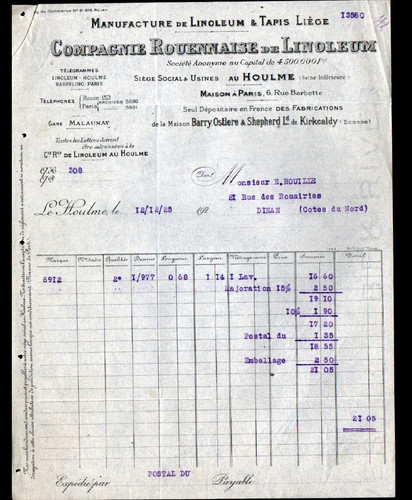 13580
MANUFACTURE DE LINOLEUM & TAPIS LIÈGE
COMPAGNIE ROUENNAISE DE LINOLEUM
Société Anonyme au Capital de 4.500.000 Frs
TÉLÉGRAMMES
LINOLEUM-HOULME
BARRYLINO-PARIS
SIÈGE SOCIAL & USINES AU HOULME (Seine-Inférieure)
MAISON À PARIS, 6, Rue Barbette
TÉLÉPHONES Rouen 153
Paris ARCHIVES 5580
5581
Seul Dépositaire en France DES FABRICATIONS
de la Maison Barry, Ostlere & Shepherd Ld. de Kirkcaldy (Ecosse)
GARE MALAUNAY
Toutes les Lettres doivent
être adressées à la
Cie Rse DE LINOLEUM AU HOULME
308
Doit
Monsieur E.ROUILLE
21 Rue des Rouairies
DINAN (Cotes du Nord)
Le Houlme, le 12/12/25 192
Marque Qualités Dessins Longueurs Largeurs Prix Sommes Total
6912 2° 1/977 0 68 1 14 1 Lav. 16 60
Majoration 15% 2 50
19 10
10% 1 90
17 20
Postal du 1 35
18 55
Emballage 2 50
21 05
21 05
POSTAL DU
Expédié par Payable